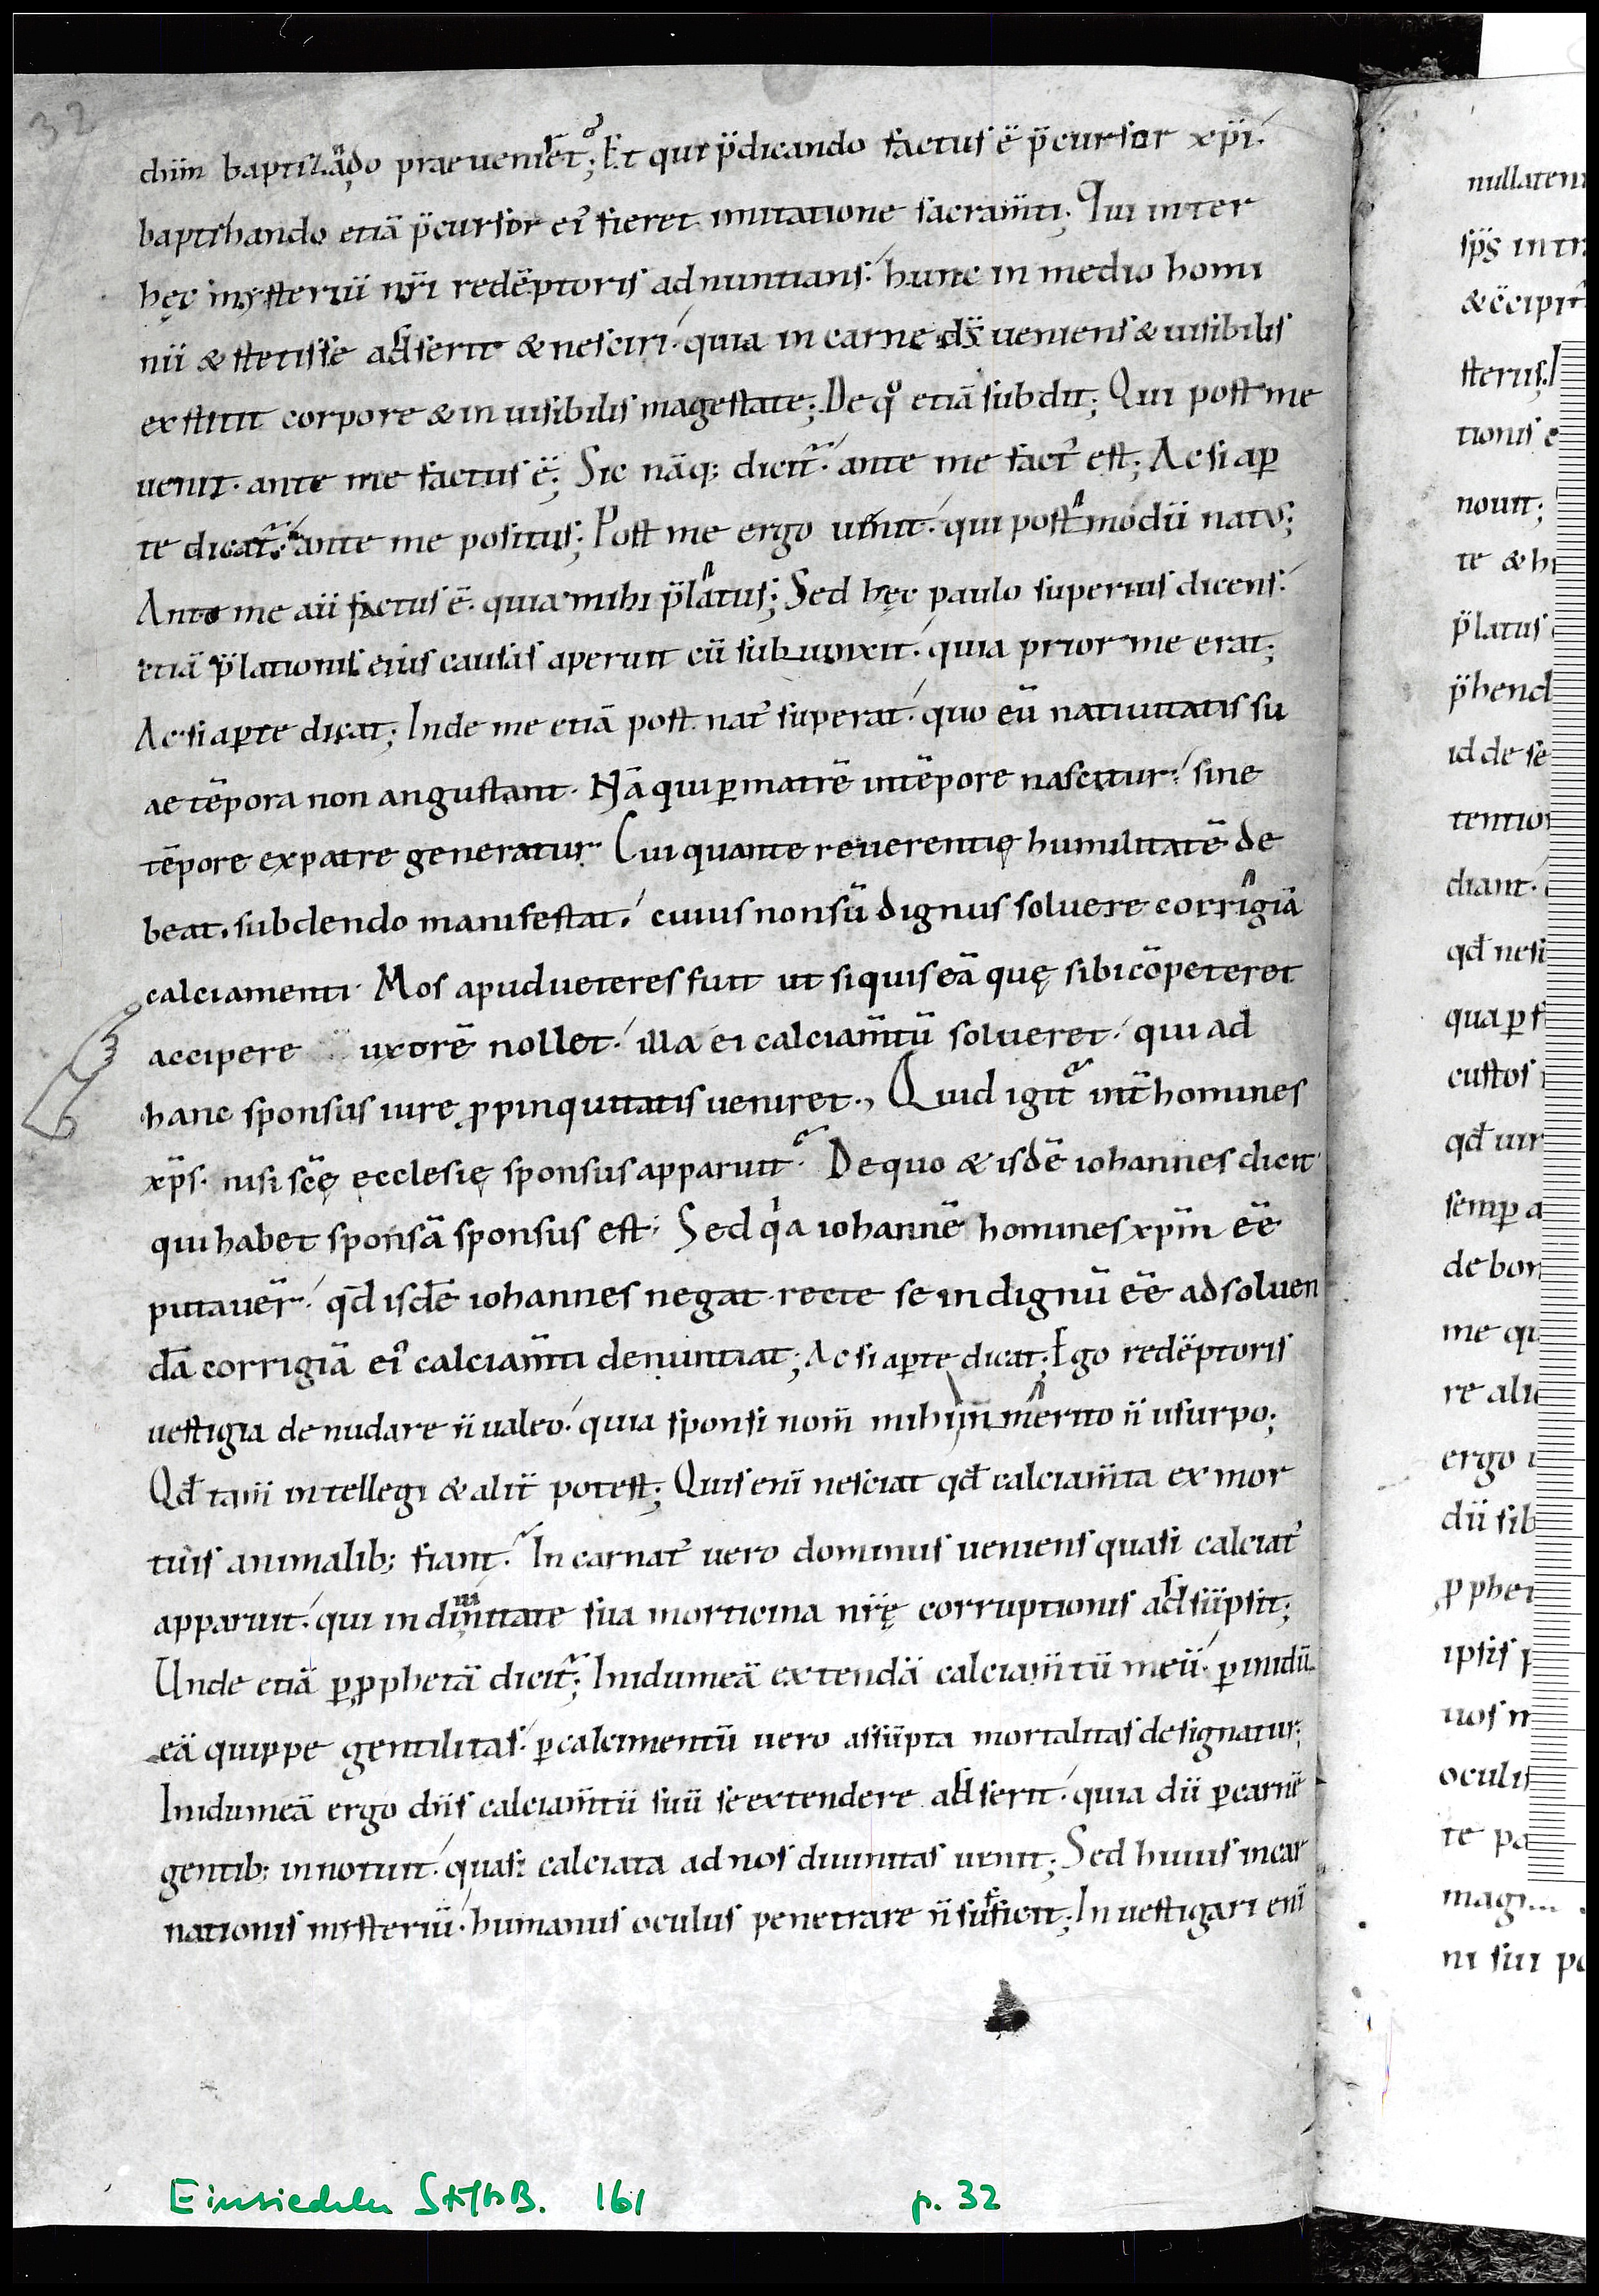 32
dn̄m baptizādo praeveniret; Et qui p̄dicando factus ē p̄cursor xp̄i.
baptizando etiā p̄cursor ei᾿ fieret imitatione sacram̄ti; Qui inter
hęc mysteriū nr̄i redēptoris adnuntians. hunc in medio homi
nū & stetisse adserit & nesciri. quia in carne dn̄s veniens & uisibilis
exstitit corpore & inuisibilis magestate; De qͦ etiā subdit; Qui post me
venit. ante me factus ē; Sic nāq; dicit᷒. ante me fact᾿ est; Ac si aꝑ
te dicat᷒. ante me positus; Post me ergo venit. qui postmodū natus;
Ante me aū factus ē. quia mihi p̄latus; Sed hęc paulo superius dicens.
etiā p̄lationis eius causas aperuit cū subiunxit. quia prior me erat;
Ac si aꝑte dicat; Inde me etiā post nat᾿ superat. quo eū natiuitatis su
ae tēpora non angustant. Nā qui ꝑ matrē in tēpore nascitur. sine
tēpore ex patre generatur. Cui quante reuerentię humilitatē de
beat. subdendo manifestat. cuius non sū dignus soluere corrigiā
calciamenti. Mos apud ueteres fuit ut si quis eā quę sibi cōpeteret
accipere uxorē nollet. illa ei calciam̄tū solueret. qui ad
hanc sponsus iure ꝓpinquitatis ueniret., Quid igit᷒ int̄ homines
xp̄s. nisi scę̄ ecclesię sponsus apparuit. De quo & isdē iohannes dicit
qui habet sponsā sponsus est. Sed qͥa iohannē homines xp̄m eē
putauer̄. qd̄ isdē iohannes negat. recte se indignū eē ad soluen
dā corrigiā ei᾿ calciam̄ti denuntiat; Ac si aꝑte dicat; Ego redēptoris
uestigia denudare n̄ ualeo. quia sponsi nom̄ mihi in merito n̄ usurpo;
Qd̄ tam̄ intellegi & alit̄ potest; Quis eni̅ nesciat qd̄ calciam̄ta ex mor
tuis animalib; fiant. Incarnat᾿ vero dominus ueniens quasi calciat᾿
apparuit. qui in diuinitate sua morticina nr̄ę corruptionis adsūpsit;
Unde etiā ꝑ ꝓphetā dicit᷒; In idumeā extendā calciam̄tū meū. ꝑ in idu
meā quippe gentilitas. ꝑ calcimentū vero assūpta mortalitas designatur;
In idumeā ergo dn̄s calciam̄tū suū se extendere adserit. quia dū ꝑ carnē
gentib; innotuit. quasi calciata ad nos diuinitas uenit; Sed huius incar
nationis misteriū. humanus oculus penetrare n̄ sufficit; Inuestigari eni̅
nullaten
sp̄s in tr
& ēcipit᷒
sterus.
tionis e
nouit;
te & h
p̄latus
p̄hend
id de se
tentio
diant.
qd̄ nesi
qua ꝑ s
custos
qd̄ uir
semꝑ a
de bon
me qu
re ali
ergo
dū sib
ꝓphe
ipsis p
uos n
oculis
te pa
magi
ni sui po
Einsiedeln StiftsB. 161 p. 32